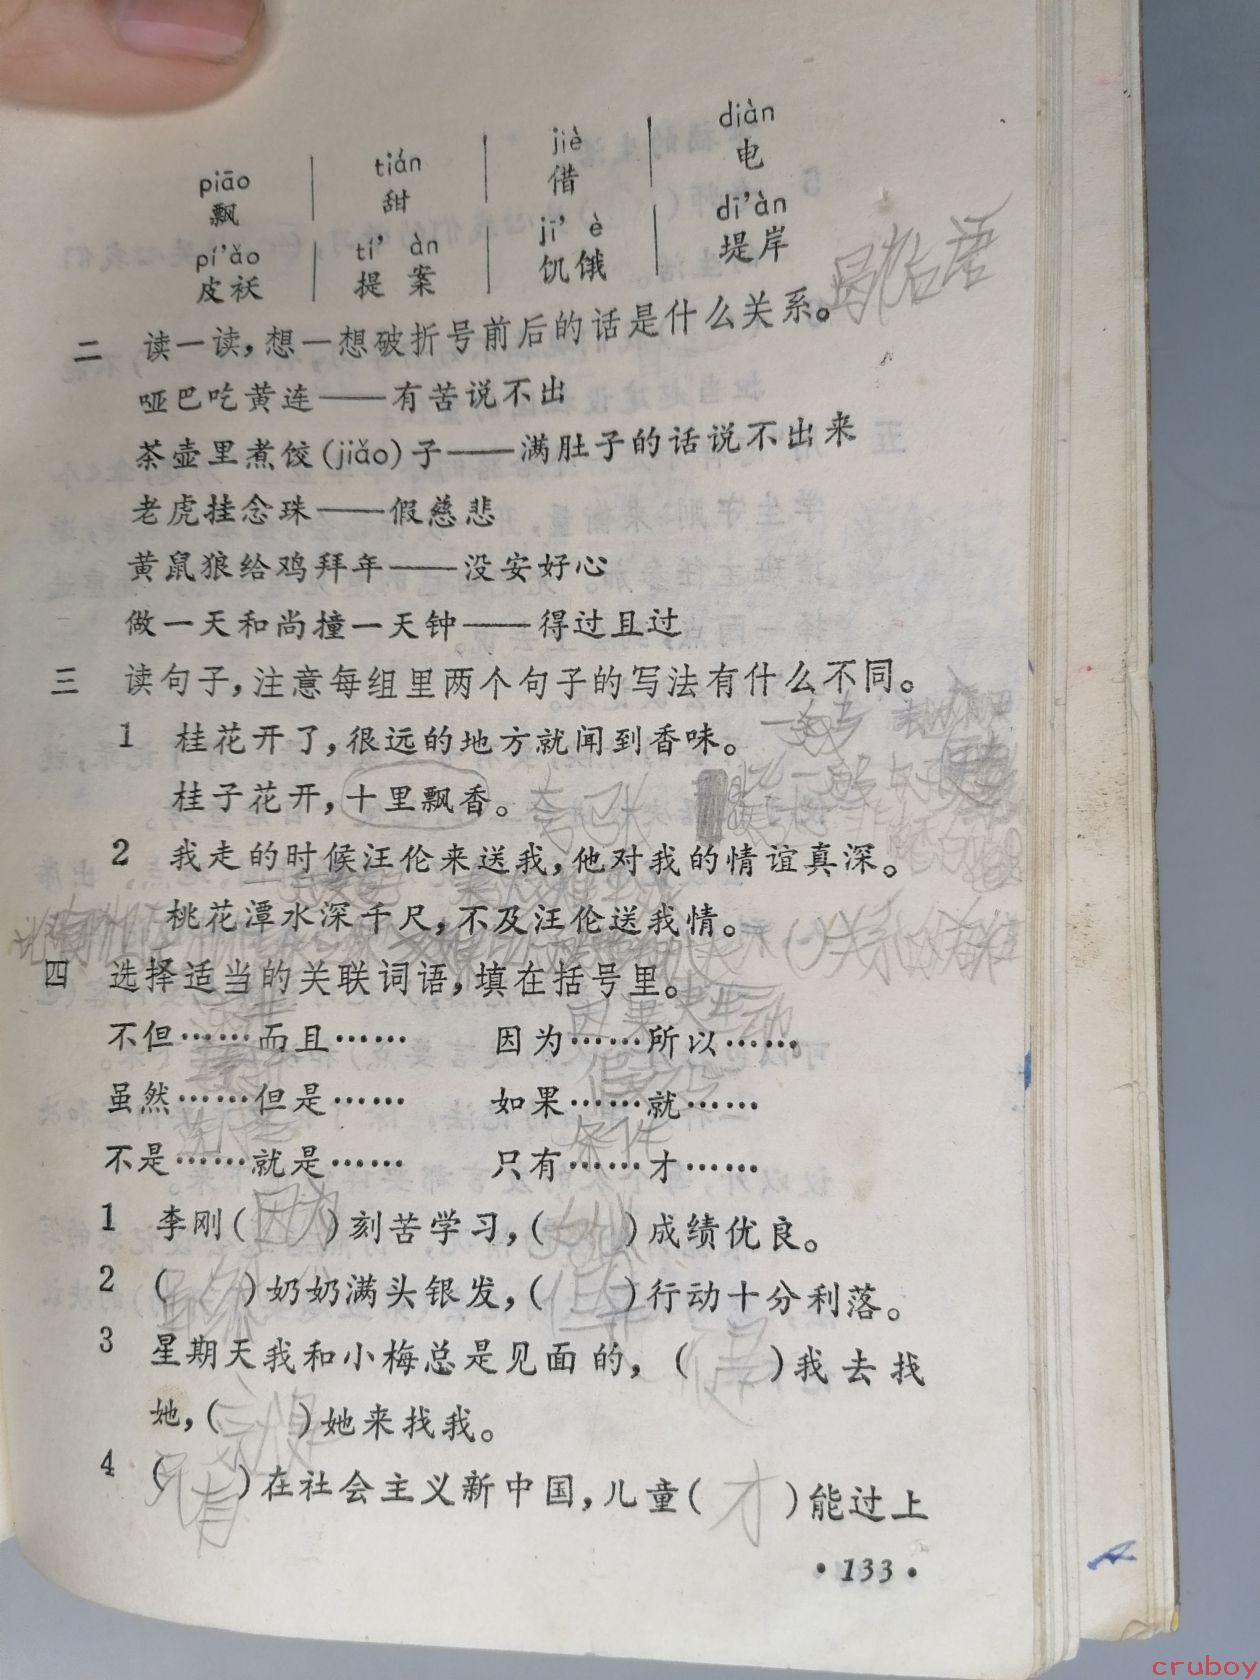 piāo tián jiè diàn
飘 甜 借 电
pí'ǎo tí'àn jī'è dī'àn
皮袄 提案 饥饿 堤岸
歇后语
二 读一读，想一想破折号前后的话是什么关系。
哑巴吃黄连——有苦说不出
茶壶里煮饺(jiǎo)子——满肚子的话说不出来
老虎挂念珠——假慈悲
黄鼠狼给鸡拜年——没安好心
做一天和尚撞一天钟——得过且过
三 读句子，注意每组里两个句子的写法有什么不同。
1 桂花开了，很远的地方就闻到香味。
桂子花开，十里飘香。
夸张
2 我走的时候汪伦来送我，他对我的情谊真深。
桃花潭水深千尺，不及汪伦送我情。
四 选择适当的关联词语，填在括号里。
不但……而且…… 因为……所以……
因果
虽然……但是…… 如果……就……
假设
不是……就是…… 只有……才……
条件
1 李刚(因为)刻苦学习，(所以)成绩优良。
2 (虽然)奶奶满头银发，(但是)行动十分利落。
3 星期天我和小梅总是见面的，(不是)我去找
她，(就是)她来找我。
4 (只有)在社会主义新中国，儿童(才)能过上
·133·
cruboy